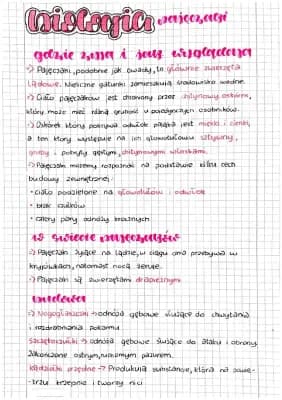 Biologia pajęczaki
gdzie żyją i jak wyglądają
-> Pajęczaki, podobnie jak owady, to głównie zwierzęta
lądowe. Nieliczne gatunki zamieszkują środowisko wodne.
-> Ciało pajęczaków jest chronione przez chitynowy oskórek,
który może mieć różną grubość u poszczególnych osobników.
-> Oskórek, który pokrywa odwłok pająka jest miękki i cienki,
a ten który występuje na ich głowotułowiu sztywny,
gruby i pokryty gęstymi, chitynowymi włoskami.
-> Pajęczaki możemy rozpoznać na podstawie kilku cech
budowy zewnętrznej:
• ciało podzielone na głowotułów i odwłok
• brak czułków
• cztery pary odnóży krocznych
w świecie pajęczaków
-> Pajęczaki żyjące na lądzie, w ciągu dnia przebywają w
kryjówkach, natomiast nocą żerują.
-> Pajęczaki są zwierzętami drapieżnymi
budowa
-> Nogogłaszczki -> odnóża gębowe służące do chwytania
i rozdrabniania pokarmu
szczękoczułki -> odnóża gębowe służące do ataku i obrony.
Zakończone ostrym, ruchomym pazurem.
kądziołki przędne -> Produkują substancję, która na powie-
trzu krzepnie i tworzy nici